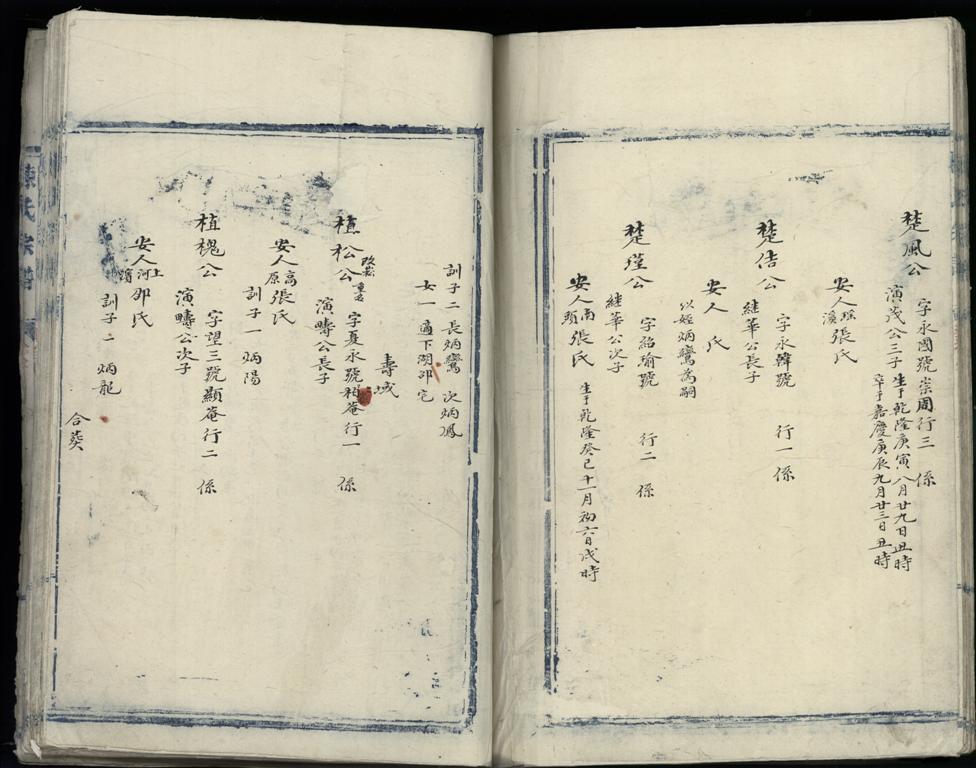 楚風公
字永國號崇周行三 係
演茂公三子
生于乾隆庚寅八月廿九日丑時
卒于嘉慶庚辰九月廿三日丑時
安人 瑤溪 張氏
楚佶公
字永韓號 行一 係
継華公長子
安人 氏
以姪炳鸞為嗣
楚瑾公
字紹瑜號 行二 係
継華公次子
安人 南頭 張氏
生于乾隆癸巳十一月初六日戌時
訓子二 長炳鸞 次炳鳳
女一 適下湖邵宅
壽域
植松公
字夏永號柏菴行一 係
演疇公長子
安人 高原 張氏
訓子一 炳陽
植槐公
字望三號顯菴行二 係
演疇公次子
安人 上河 邵氏
訓子二 炳龍
合葵
氏宗譜